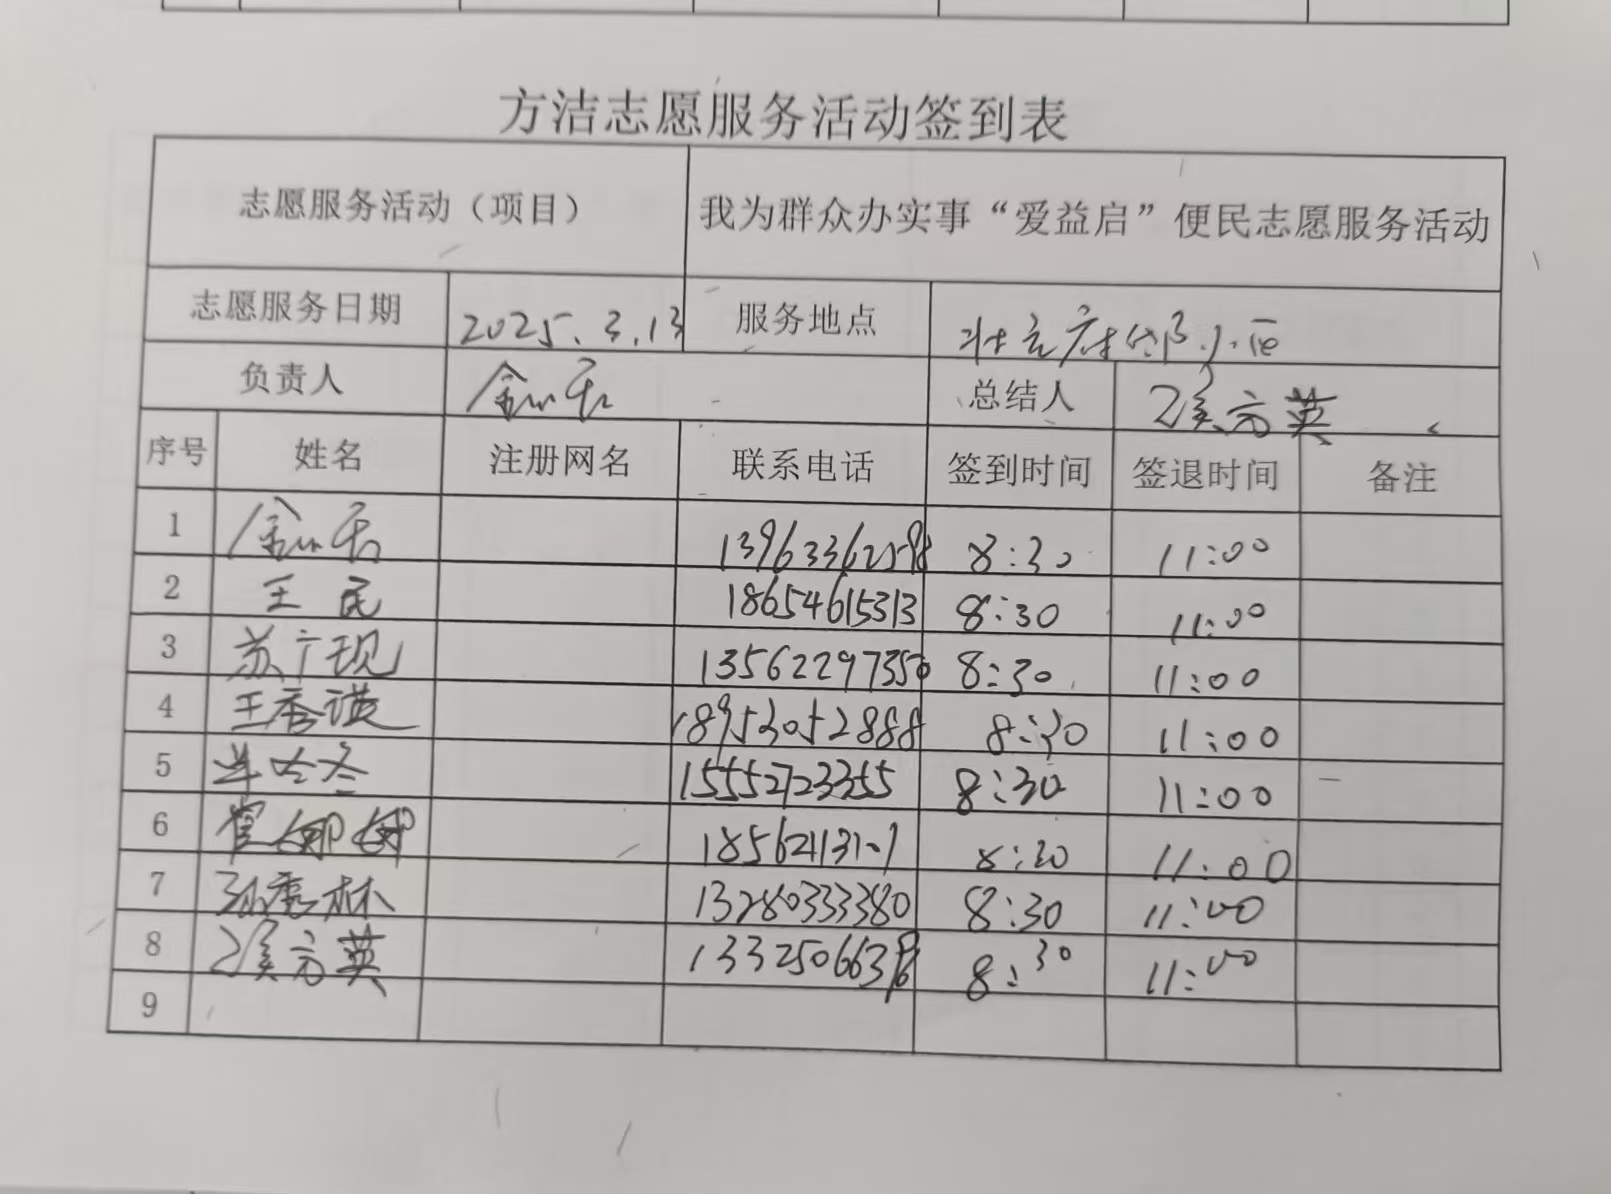 方洁志愿服务活动签到表
志愿服务活动（项目） 我为群众办实事“爱益启”便民志愿服务活动
志愿服务日期 2025.3.13 服务地点
负责人 总结人 方英
序号 姓名 注册网名 联系电话 签到时间 签退时间 备注
1 13963362598 8:30 11:00
2 王民 18654615313 8:30 11:00
3 苏广现 13562297350 8:30 11:00
4 王秀 18953052888 8:30 11:00
5 15552723355 8:30 11:00
6 崔娜娜 8:30 11:00
7 孙秀林 13280333380 8:30 11:00
8 方英 8:30 11:00
9